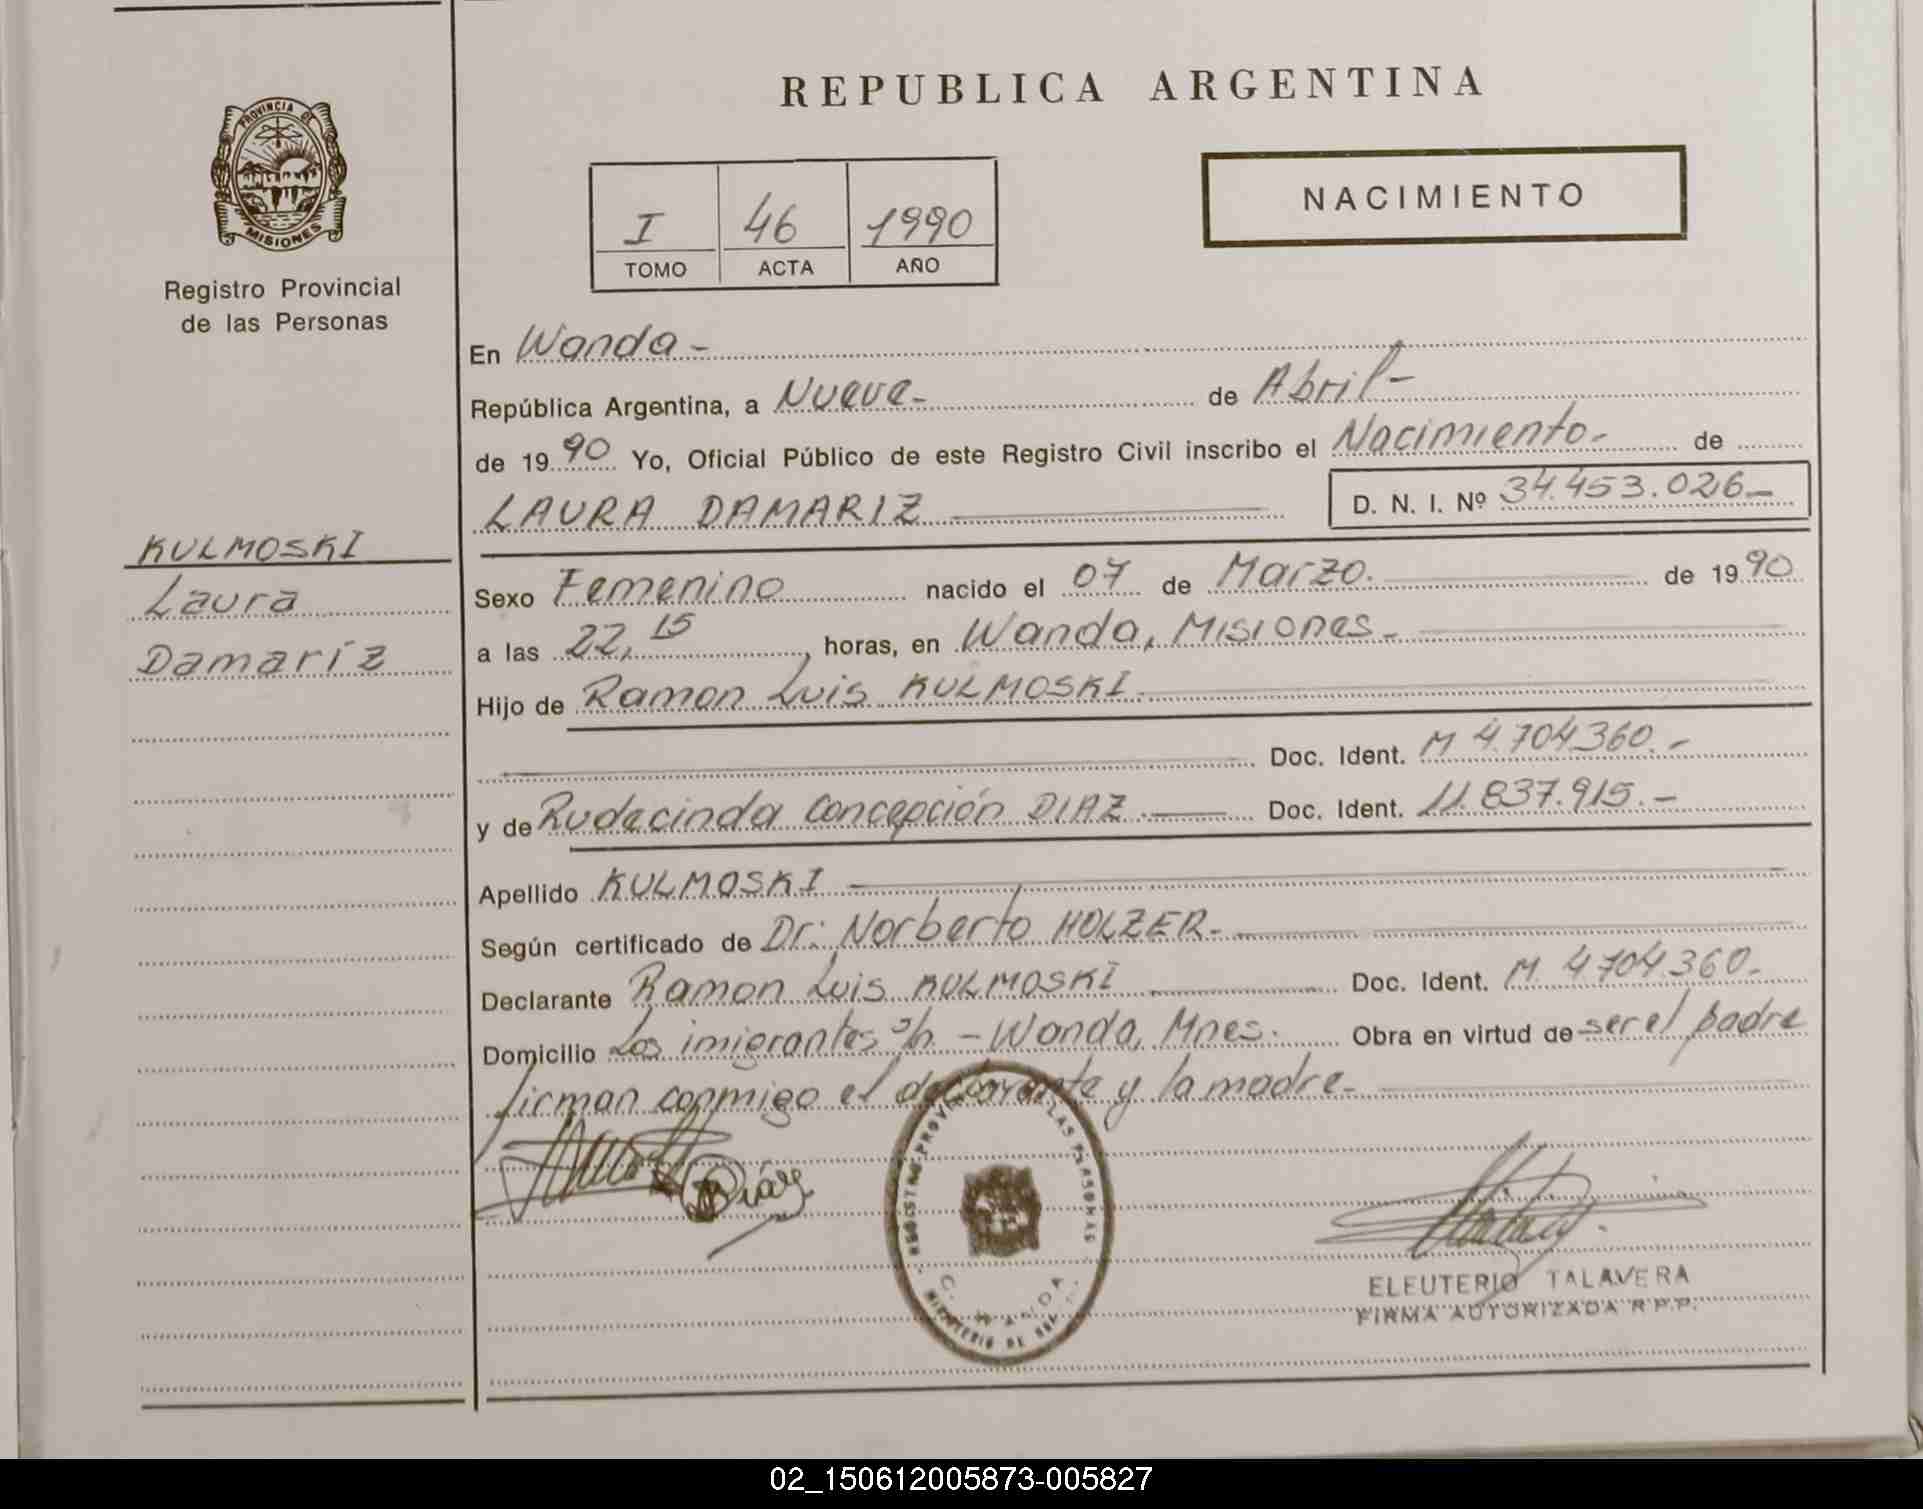 REPUBLICA ARGENTINA
PROVINCIA DE
MISIONES
Registro Provincial
de las Personas
I 46 1990
TOMO ACTA AÑO
NACIMIENTO
KULMOSKI
Laura
Damaríz
En Wanda-
República Argentina, a Nueve- de Abril-
de 1990 Yo, Oficial Público de este Registro Civil inscribo el Nacimiento.- de
LAURA DAMARIZ D. N. I. Nº 34.453.026-
Sexo Femenino nacido el 07 de Marzo. de 1990
a las 22,15 horas, en Wanda, Misiones-
Hijo de Ramon Luis KULMOSKI
Doc. Ident. M 4.704360.-
y de Rudecinda Concepción DIAZ. Doc. Ident. 11.837.915.-
Apellido KULMOSKI
Según certificado de Dr: Norberto HOLZER-
Declarante Ramon Luis KULMOSKI Doc. Ident. M. 4.704.360-
Domicilio Los imigrantes s/n - Wanda, Mnes. Obra en virtud de ser el padre
firman conmigo el declarante y la madre-
Diáz
REGISTRO PROV LAS PERSONAS
WANDA
MINISTERIO DE
ELEUTERIO TALAVERA
FIRMA AUTORIZADA R.P.P.
02_150612005873-005827